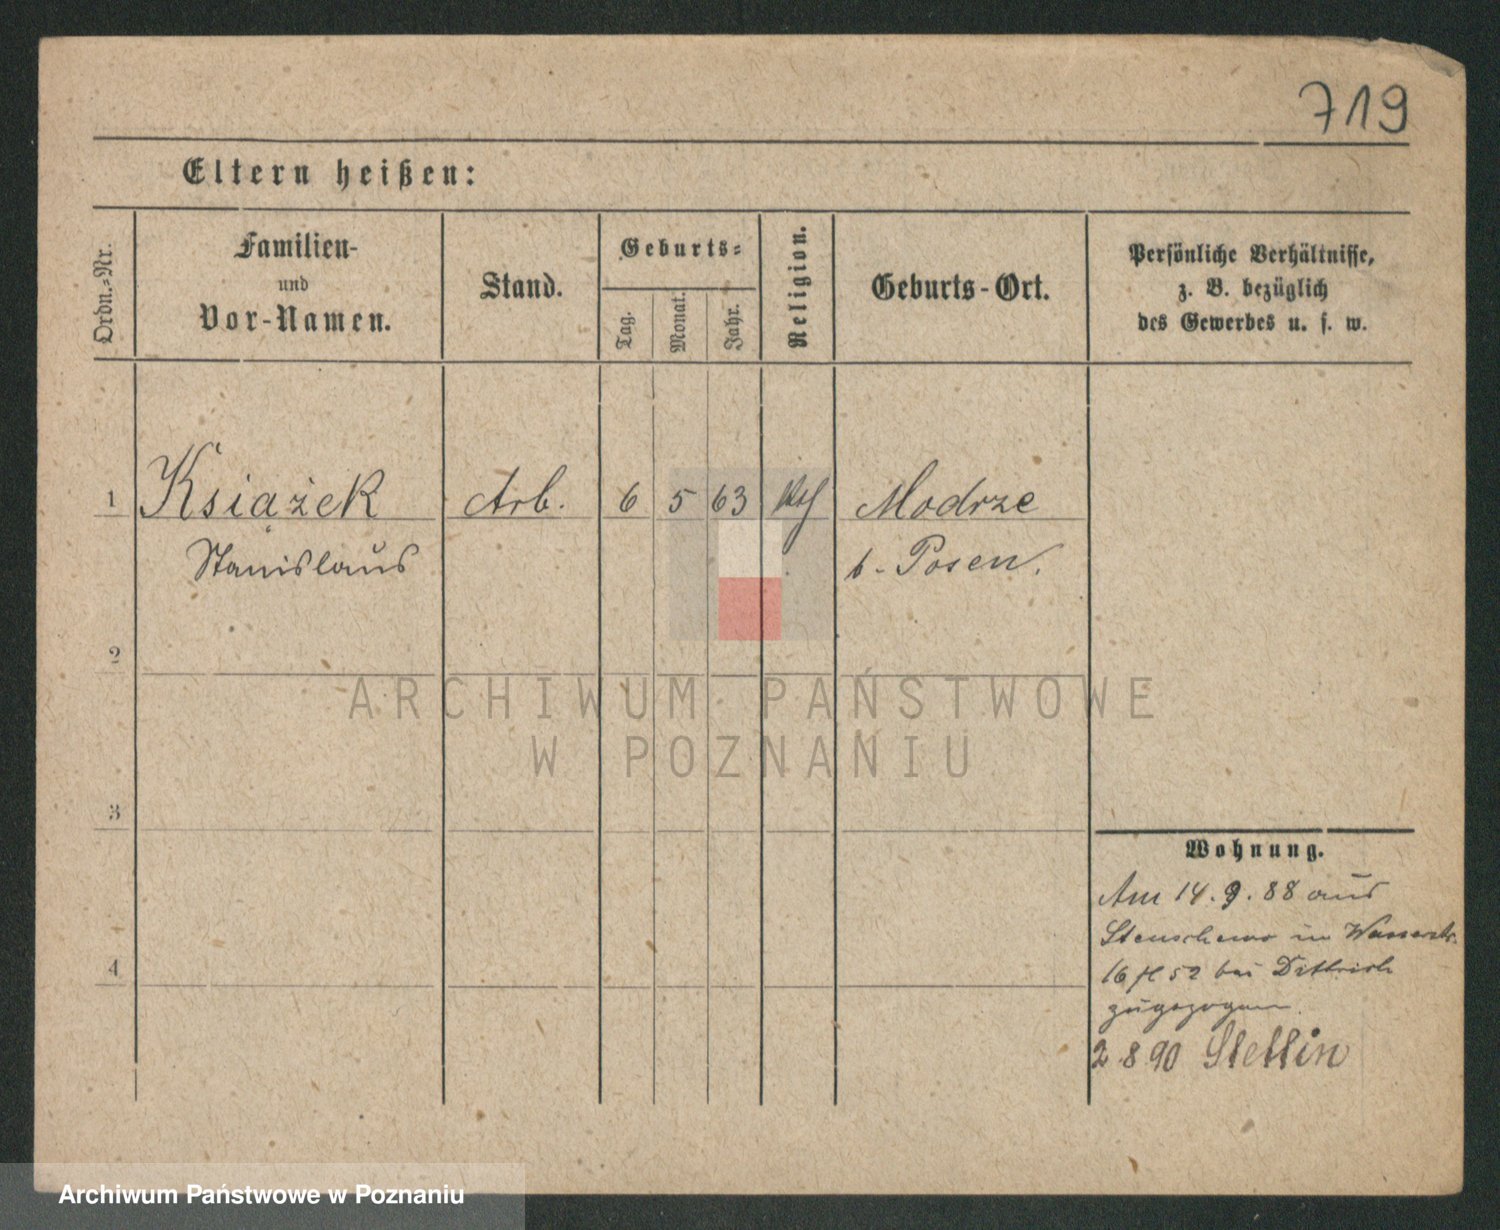 719
Eltern heißen:
Ordn.-Nr.
Familien-
und
Vor-Namen.
Stand.
Geburts-
Tag.
Monat.
Jahr.
Religion.
Geburts-Ort.
Persönliche Verhältnisse,
z. B. bezüglich
des Gewerbes u. s. w.
1 Książek Arb. 6 5 63 kth Modrze
Stanislaus b. Posen.
2
ARCHIWUM PAŃSTWOWE
W POZNANIU
3
Wohnung.
Am 14. 9. 88 aus
Stenschewo in Wasserstr.
4
16 52 bei Dittrich
zugezogen.
2.8.90 Stettin
Archiwum Państwowe w Poznaniu